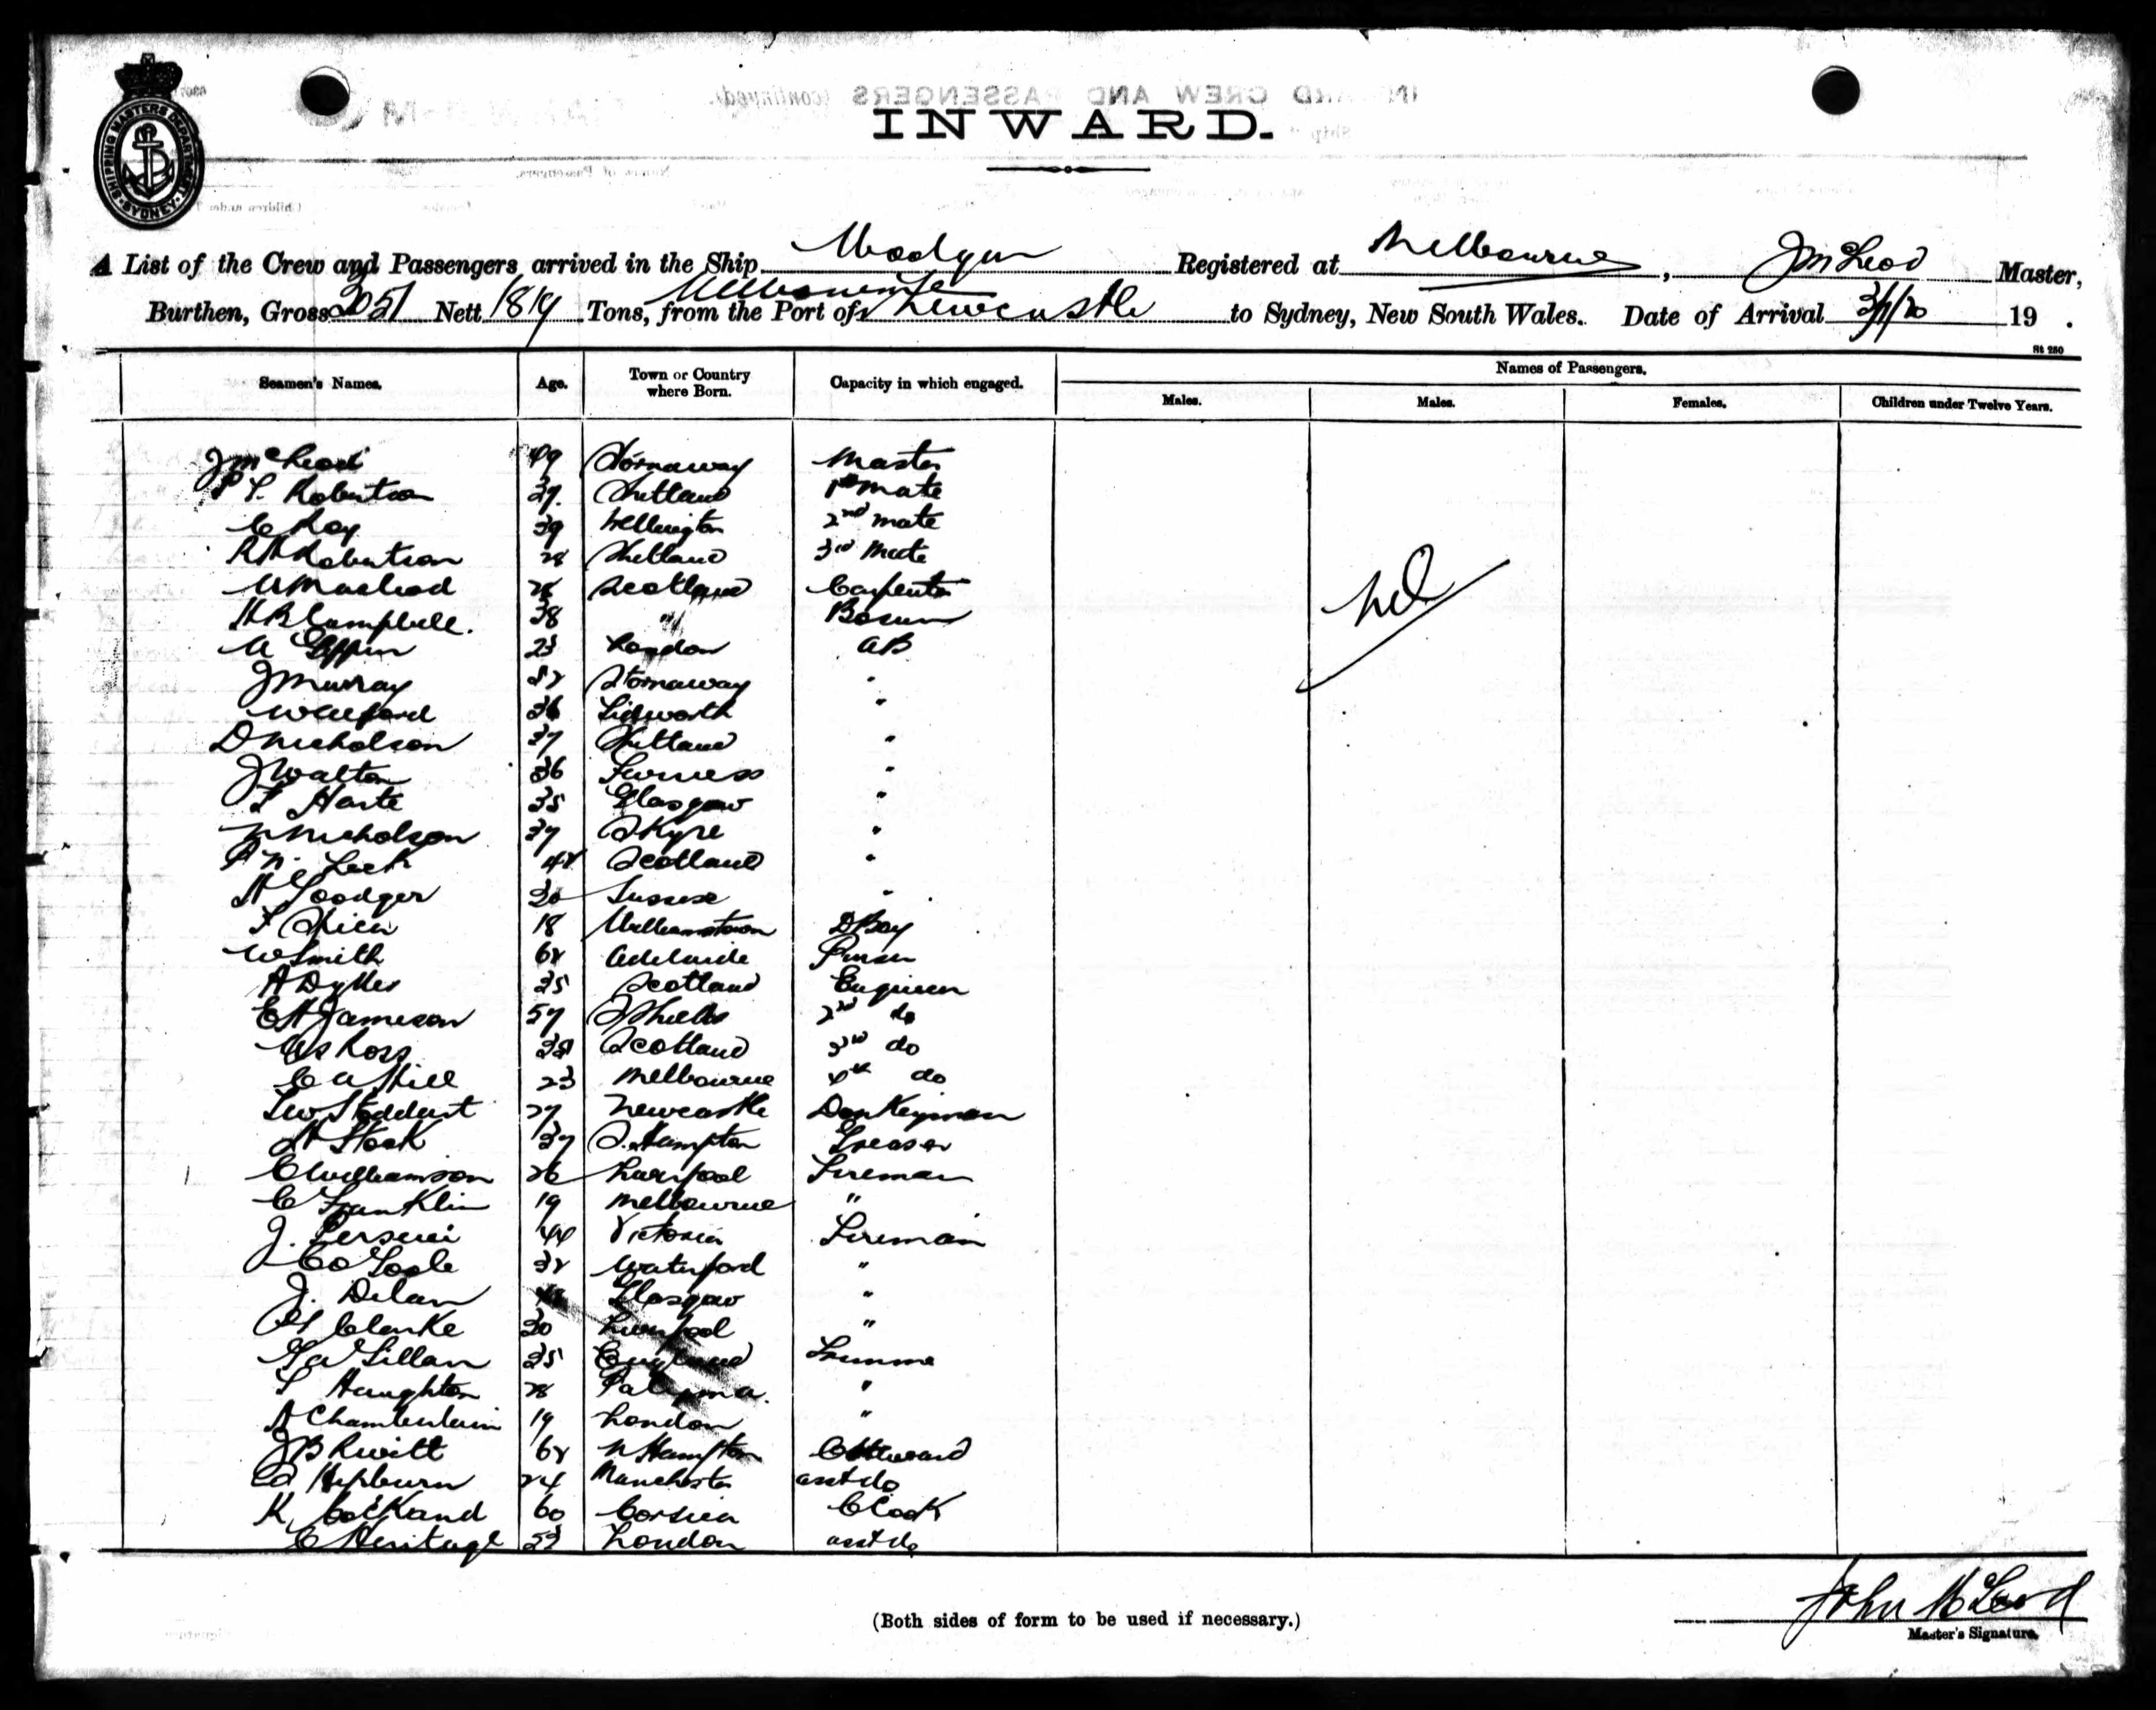 SHIPPING MASTERS DEPARTMENT
SYDNEY
INWARD CREW AND PASSENGERS (continued).
INWARD.
A List of the Crew and Passengers arrived in the Ship Registered at Melbourne, J McLeod Master,
Burthen, Gross 3051 Nett 1819 Tons, from the Port of Melbourne Newcastle to Sydney, New South Wales. Date of Arrival 3/1/20 19 .
St 250
Seamen's Names. Age. Town or Country where Born. Capacity in which engaged. Names of Passengers.
Males. Males. Females. Children under Twelve Years.
J McLeod 49 Stornaway Master
P L Robertson 37. Shetland 1st Mate
C Roy 39 Wellington 2nd mate
R H Robertson 28 Shetland 3rd Mate
A Macleod 28 Scotland Carpenter
H B Campbell. 38 " Bosun
A 23 London AB
J Murray 52 Stornaway "
W 36 "
D Nicholson 37 Shetland "
J Walton 36 Furness "
F Harte 35 Glasgow "
N Nicholson 37 Skyre "
48 Scotland "
H Goodger 30 Sussex "
F 18 Williamstown D Boy
W Smith 62 Adelaide Purser
A Dykes 35 Scotland Engineer
E H Jameson 57 S Shields 2nd do
Ross 38 Scotland 3rd do
C A Hill 23 Melbourne 4th do
L W Stoddart 27 Newcastle Donkeyman
H Stock 37 S. Hampton Greaser
C Williamson 26 Liverpool Fireman
C Franklin 19 Melbourne "
J. 44 Victoria Fireman
32 Waterford "
J. Dolan Glasgow "
Clarke 30 Liverpool "
25 England
L Haughton 28 "
A Chamberlain 19 London "
J B Hewitt 62 N Hampton C Steward
A Hepburn 24 Manchester asst do
K 60 Corsica C Cook
C Heritage 53 London asst do
Nil
(Both sides of form to be used if necessary.)
John McLeod
Master's Signature.